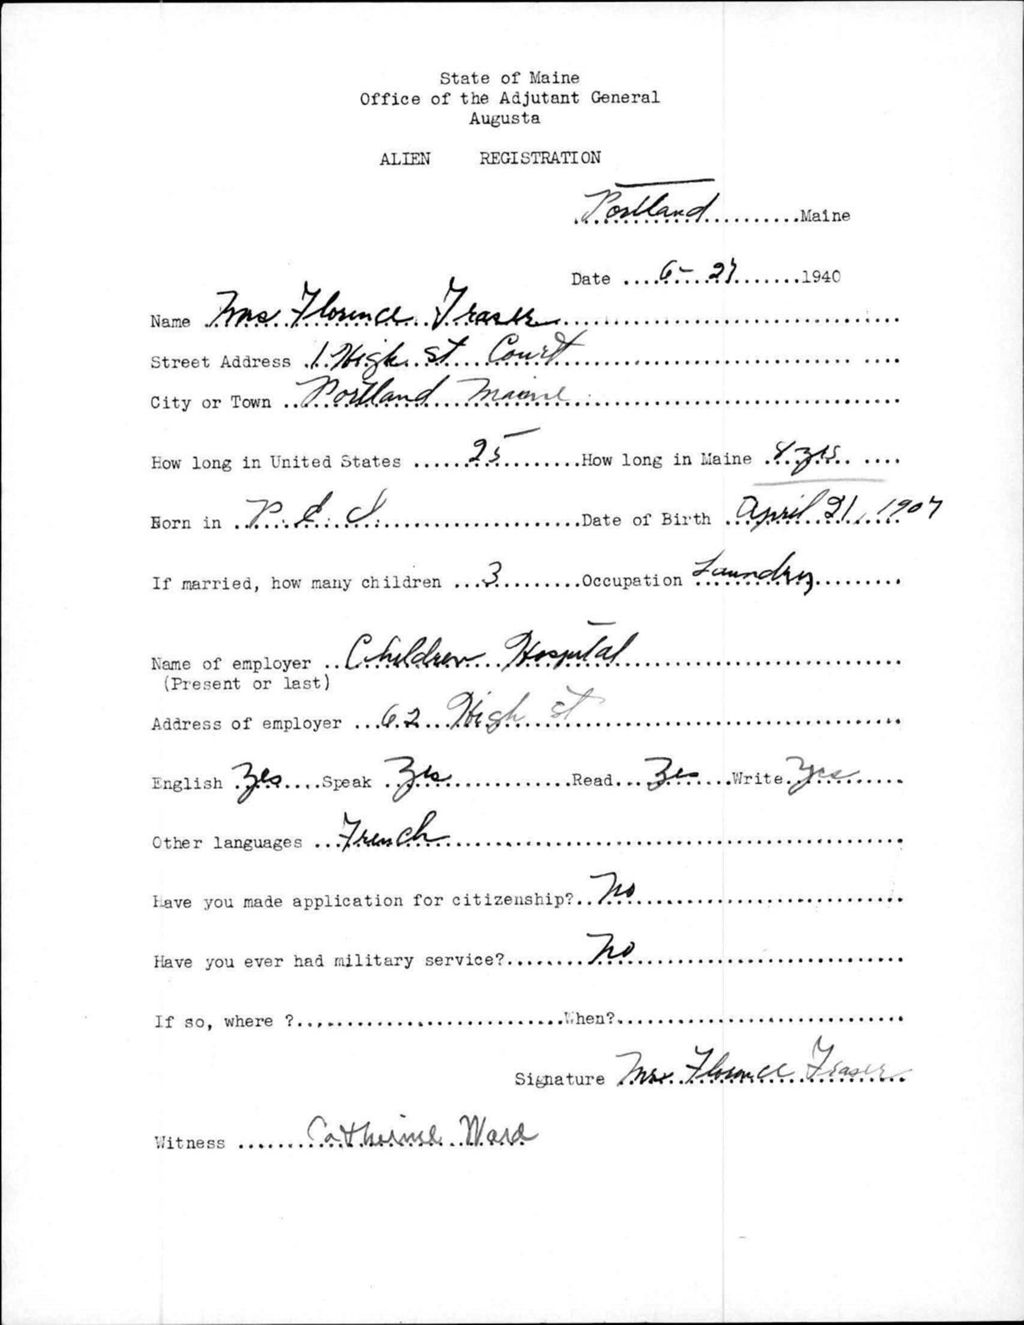 State of Maine
Office of the Adjutant General
Augusta
ALIEN REGISTRATION
Portland Maine
Date 6-27 1940
Name Mrs Florence Fraser
Street Address 1 High St Court
City or Town Portland Maine
How long in United States 25 How long in Maine yrs
Born in P. E. I. Date of Birth April 21, 1907
If married, how many children 3 Occupation Laundry
Name of employer Children Hospital
(Present or last)
Address of employer 62 High St
English Yes Speak Yes Read Yes Write Yes
Other languages French
Have you made application for citizenship? No
Have you ever had military service? No
If so, where ? When?
Signature Mrs. Florence Fraser
Witness Catherine Ward